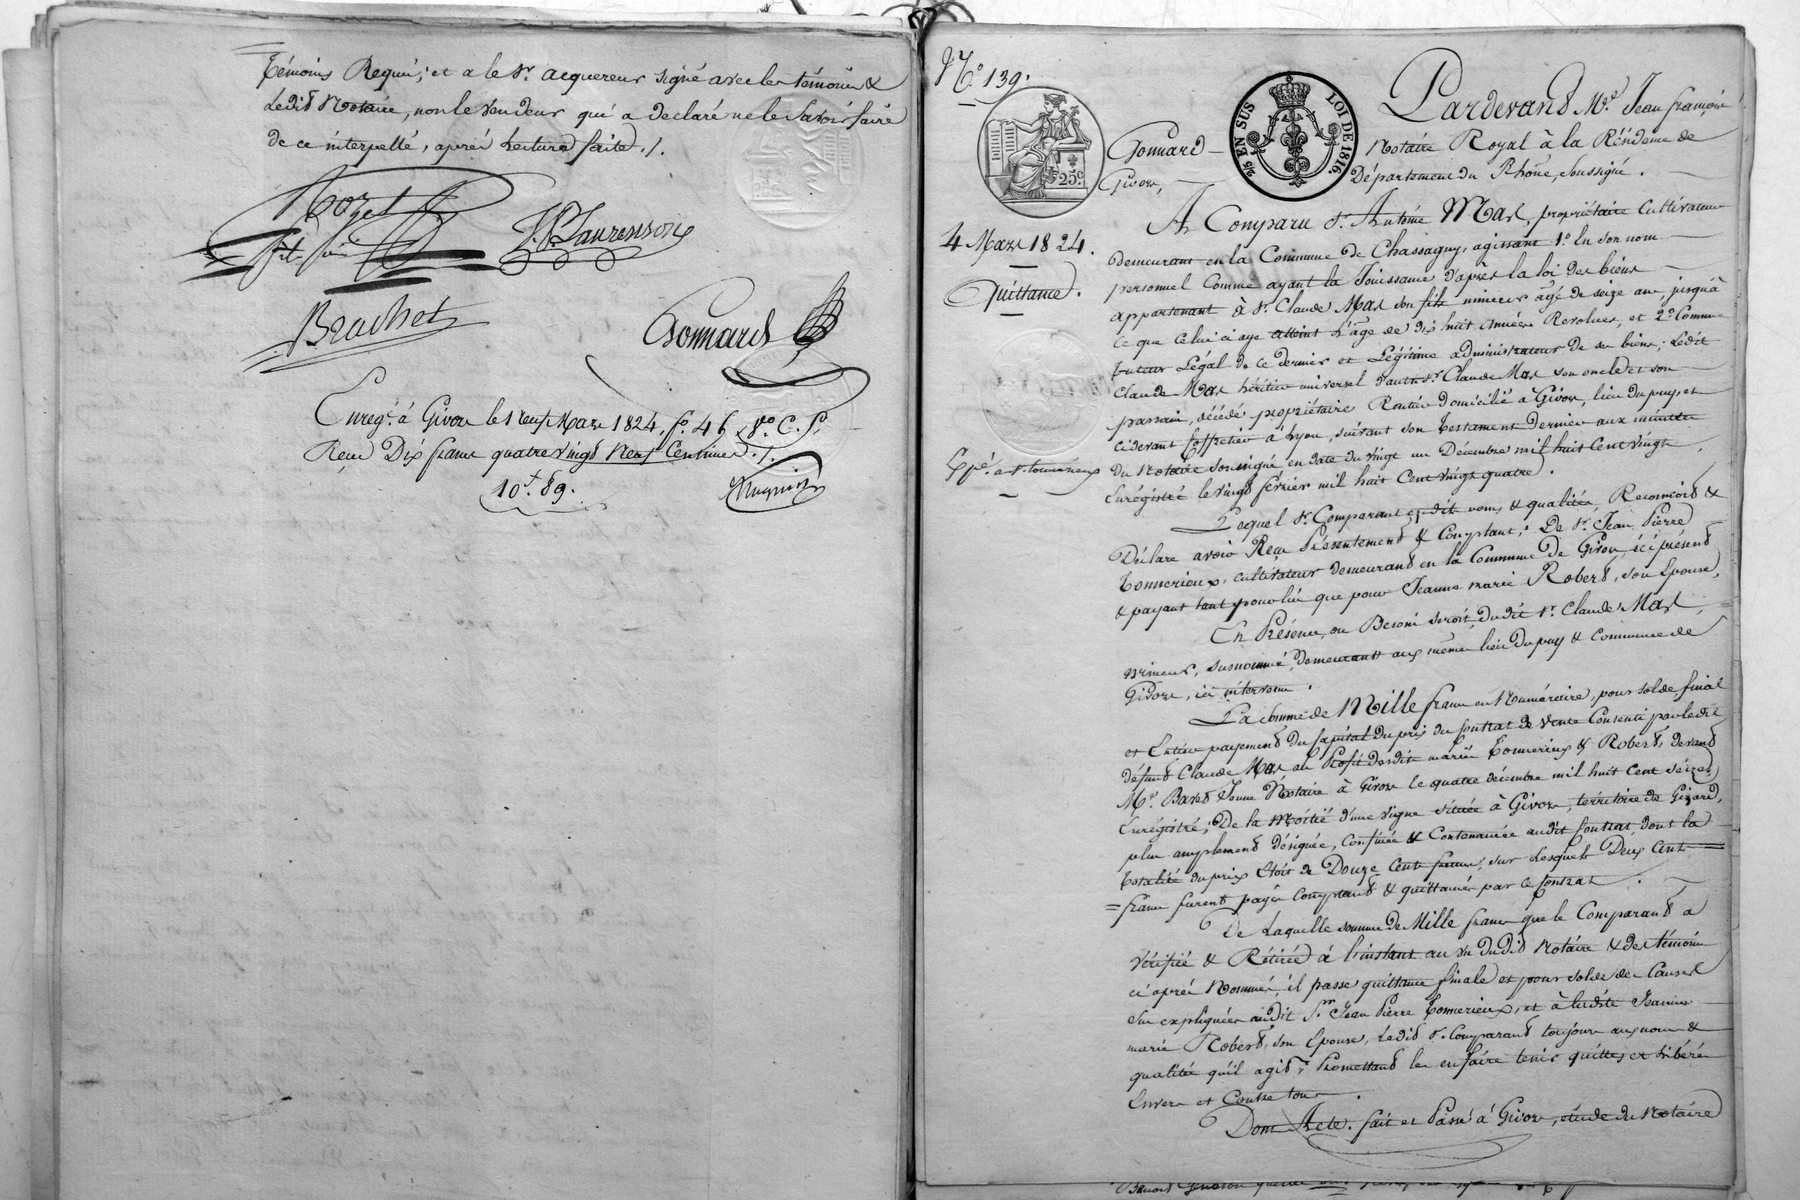 témoins Requis; et a le Sr. acquereur signé avec les témoins &
Ledit Notaire, non le vendeur qui a declaré ne le Savoir faire
de ce interpellé, après Lecture faite ./.
J. P. Laurenson
Brachet
Gonnard
Enregé. à Givors le neuf Mars 1824, fo. 46 vo. C.
Reçu Dix francs quatre vingt Neuf Centimes ./.
10f. 89.
No. 139.
25c
2/5 EN SUS
LOI DE 1816.
Pardevant Me. Jean françois
Gonnard Notaire Royal à la Résidence de
Givors, Département du Rhône, Soussigné.
4 Mars 1824.
Quittance.
A Comparu Sr. Antoine Mas, propriétaire Cultivateur
demeurant en la Commune de Chassagny, agissant 1o. En son nom
personnel Comme ayant la Jouissance d'après la loi des biens
appartenant à Sr. Claude Mas son fils mineur âgé de seize ans, jusqu'à
ce que Celui ci aye atteint L'âge de dix huit Années Revolues, et 2o. Comme
tuteur Légal de ce dernier et Légitime administrateur de ses biens; Ledit
Claude Mas héritier universel d'autre Sr. Claude Mas son oncle et son
parrain, décédé propriétaire Rentier domicilié à Givors, lieu du puy, et
cidevant Coffretier à Lyon, suivant son testament dernier aux minutes
du Notaire soussigné en date du vingt un Décembre mil huit Cent vingt
Enrégistré le vingt fevrier mil huit Cent vingt quatre.
Expé. a Sr. tonnerieux
Lequel Sr. Comparant esdits noms & qualités, Reconnoit &
Déclare avoir Reçu Présentement & Comptant; De Sr. Jean Pierre
Tonnerieux, cultivateur demeurant en la Commune de Givors, ici présent
& payant tant pour lui que pour Jeanne marie Robert, son Epouse,
En Présence, ou Besoin seroit, dudit Sr. Claude Mas,
mineur, susnommé, demeurant aux mêmes lieu du puy & Commune de
Givors, ici intervenu.
La Somme de Mille francs en Numéraire, pour solde final
et Entier payement du Capital du prix du Contrat de vente Consenti par ledit
défunt Claude Mas au Profit desdits mariés Tonnerieux & Robert, devant
Me. Baret Jeune Notaire à Givors le quatre décembre mil huit cent seize,
Enrégistré; De la Moitié d'une vigne située à Givors, territoire de Gizard,
plus amplement désignée, Confinée & Contenancée audit Contrat, dont la
totalité du prix étoit de Douze Cents francs, sur Lesquels Deux Cent
francs furent payés Comptant & quittancés par ce Contrat.
De Laquelle somme de Mille francs que le Comparant a
vérifiée & Rétirée à l'instant au vu dudit Notaire & des témoins
ci après Nommés, il passe quittance finale et pour solde des Causes
Sus expliquées audit Sr. Jean Pierre Tonnerieux, et à ladite Jeanne
marie Robert, son Epouse, Ledit Sr. Comparant toujours aux noms &
qualités qu'il agit, Promettant les en faire tenir quittes et libérés
Envers et Contre tous.
Dont Acte. fait et Passé à Givors, étude du Notaire